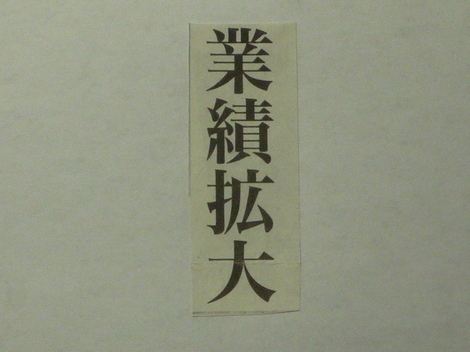 業績拡大